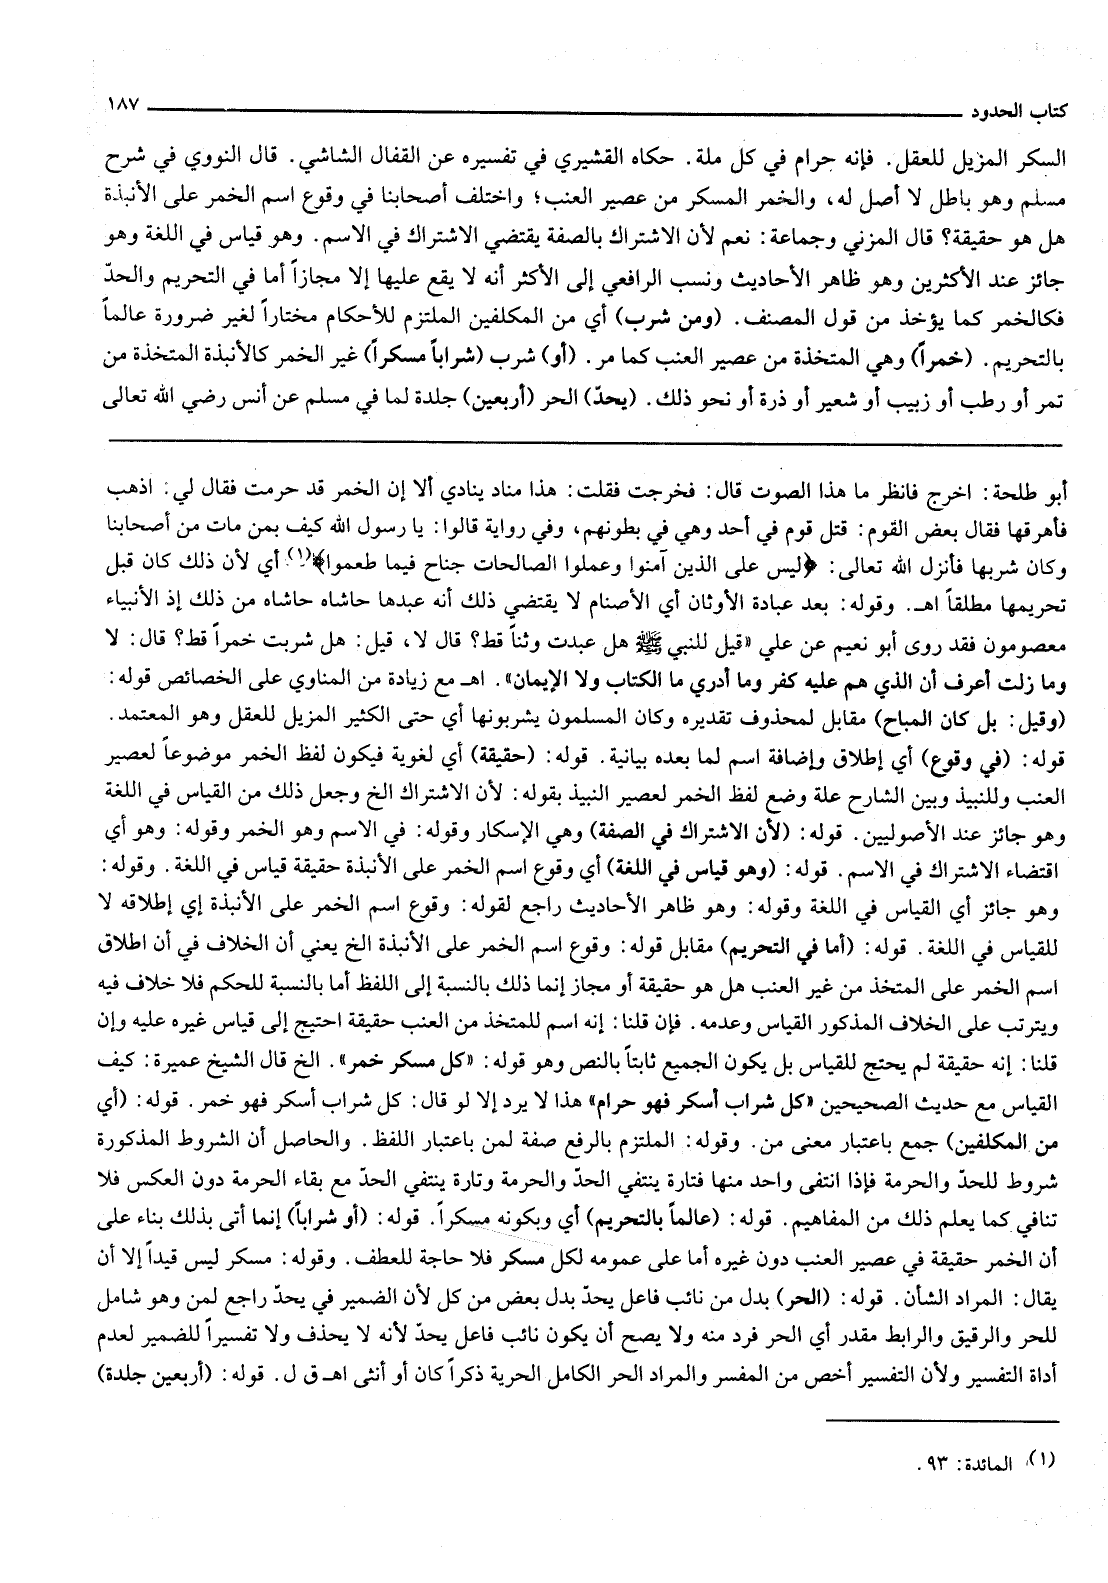 كتاب الحدود ١٨٧
السكر المزيل للعقل. فإنه حرام في كل ملة. حكاه القشيري في تفسيره عن القفال الشاشي. قال النووي في شرح
مسلم وهو باطل لا أصل له، والخمر المسكر من عصير العنب؛ واختلف أصحابنا في وقوع اسم الخمر على الأنبذة
هل هو حقيقة؟ قال المزني وجماعة: نعم لأن الاشتراك بالصفة يقتضي الاشتراك في الاسم. وهو قياس في اللغة وهو
جائز عند الأكثرين وهو ظاهر الأحاديث ونسب الرافعي إلى الأكثر أنه لا يقع عليها إلا مجازاً أما في التحريم والحدّ
فكالخمر كما يؤخذ من قول المصنف. (ومن شرب) أي من المكلفين الملتزم للأحكام مختاراً لغير ضرورة عالماً
بالتحريم. (خمراً) وهي المتخذة من عصير العنب كما مر. (أو) شرب (شراباً مسكراً) غير الخمر كالأنبذة المتخذة من
تمر أو رطب أو زبيب أو شعير أو ذرة أو نحو ذلك. (يحدّ) الحر (أربعين) جلدة لما في مسلم عن أنس رضي الله تعالى
أبو طلحة: اخرج فانظر ما هذا الصوت قال: فخرجت فقلت: هذا مناد ينادي ألا إن الخمر قد حرمت فقال لي: اذهب
فأهرقها فقال بعض القوم: قتل قوم في أحد وهي في بطونهم، وفي رواية قالوا: يا رسول الله كيف بمن مات من أصحابنا
وكان شربها فأنزل الله تعالى: ﴿ليس على الذين آمنوا وعملوا الصالحات جناح فيما طعموا﴾(١) أي لأن ذلك كان قبل
تحريمها مطلقاً اهـ. وقوله: بعد عبادة الأوثان أي الأصنام لا يقتضي ذلك أنه عبدها حاشاه حاشاه من ذلك إذ الأنبياء
معصومون فقد روى أبو نعيم عن علي «قيل للنبي ﷺ هل عبدت وثناً قط؟ قال لا، قيل: هل شربت خمراً قط؟ قال: لا
وما زلت أعرف أن الذي هم عليه كفر وما أدري ما الكتاب ولا الإيمان». اهـ مع زيادة من المناوي على الخصائص قوله:
(وقيل: بل كان المباح) مقابل لمحذوف تقديره وكان المسلمون يشربونها أي حتى الكثير المزيل للعقل وهو المعتمد.
قوله: (في وقوع) أي إطلاق وإضافة اسم لما بعده بيانية. قوله: (حقيقة) أي لغوية فيكون لفظ الخمر موضوعاً لعصير
العنب وللنبيذ وبين الشارح علة وضع لفظ الخمر لعصير النبيذ بقوله: لأن الاشتراك الخ وجعل ذلك من القياس في اللغة
وهو جائز عند الأصوليين. قوله: (لأن الاشتراك في الصفة) وهي الإسكار وقوله: في الاسم وهو الخمر وقوله: وهو أي
اقتضاء الاشتراك في الاسم. قوله: (وهو قياس في اللغة) أي وقوع اسم الخمر على الأنبذة حقيقة قياس في اللغة. وقوله:
وهو جائز أي القياس في اللغة وقوله: وهو ظاهر الأحاديث راجع لقوله: وقوع اسم الخمر على الأنبذة إي إطلاقه لا
للقياس في اللغة. قوله: (أما في التحريم) مقابل قوله: وقوع اسم الخمر على الأنبذة الخ يعني أن الخلاف في أن اطلاق
اسم الخمر على المتخذ من غير العنب هل هو حقيقة أو مجاز إنما ذلك بالنسبة إلى اللفظ أما بالنسبة للحكم فلا خلاف فيه
ويترتب على الخلاف المذكور القياس وعدمه. فإن قلنا: إنه اسم للمتخذ من العنب حقيقة احتيج إلى قياس غيره عليه وإن
قلنا: إنه حقيقة لم يحتج للقياس بل يكون الجميع ثابتاً بالنص وهو قوله: «كل مسكر خمر». الخ قال الشيخ عميرة: كيف
القياس مع حديث الصحيحين «كل شراب أسكر فهو حرام» هذا لا يرد إلا لو قال: كل شراب أسكر فهو خمر. قوله: (أي
من المكلفين) جمع باعتبار معنى من. وقوله: الملتزم بالرفع صفة لمن باعتبار اللفظ. والحاصل أن الشروط المذكورة
شروط للحدّ والحرمة فإذا انتفى واحد منها فتارة ينتفي الحدّ والحرمة وتارة ينتفي الحدّ مع بقاء الحرمة دون العكس فلا
تنافي كما يعلم ذلك من المفاهيم. قوله: (عالماً بالتحريم) أي وبكونه مسكراً. قوله: (أو شراباً) إنما أتى بذلك بناء على
أن الخمر حقيقة في عصير العنب دون غيره أما على عمومه لكل مسكر فلا حاجة للعطف. وقوله: مسكر ليس قيداً إلا أن
يقال: المراد الشأن. قوله: (الحر) بدل من نائب فاعل يحدّ بدل بعض من كل لأن الضمير في يحدّ راجع لمن وهو شامل
للحر والرقيق والرابط مقدر أي الحر فرد منه ولا يصح أن يكون نائب فاعل يحدّ لأنه لا يحذف ولا تفسيراً للضمير لعدم
أداة التفسير ولأن التفسير أخص من المفسر والمراد الحر الكامل الحرية ذكراً كان أو أنثى اهـ ق ل. قوله: (أربعين جلدة)
(١) المائدة: ٩٣.